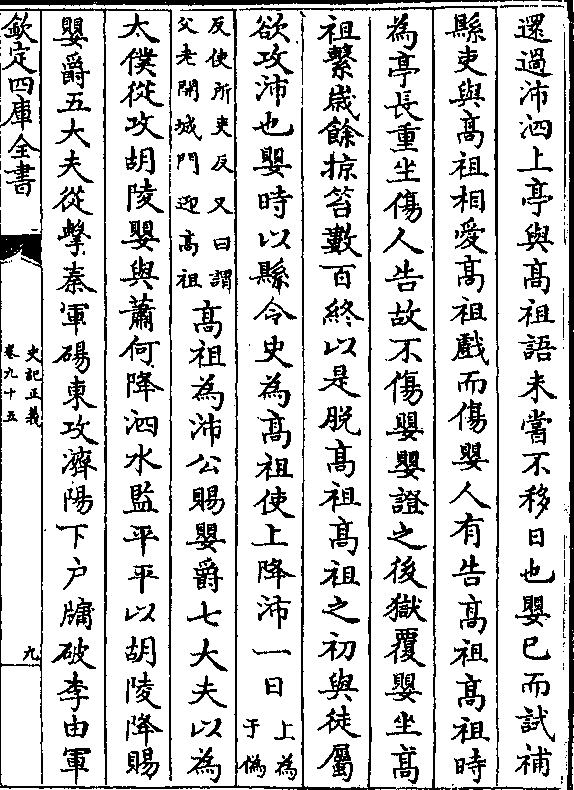 還過沛泗上亭與髙祖語未嘗不移日也嬰已而試補
縣吏與髙祖相愛髙祖戲而傷嬰人有告髙祖髙祖時
為亭長重坐傷人告故不傷嬰嬰證之後獄覆嬰坐髙
祖繫嵗餘掠笞數百終以是脱髙祖髙祖之初與徒屬
欲攻沛也嬰時以縣令史為髙祖使上降沛一日
上為
于偽
反使所吏反又曰謂
父老開城門迎髙祖
髙祖為沛公賜嬰爵七大夫以為
太僕從攻胡陵嬰與蕭何降泗水監平平以胡陵降賜
嬰爵五大夫從擊秦軍碭東攻濟陽下户牖破李由軍
欽定四庫全書
史記正義
卷九十五
九